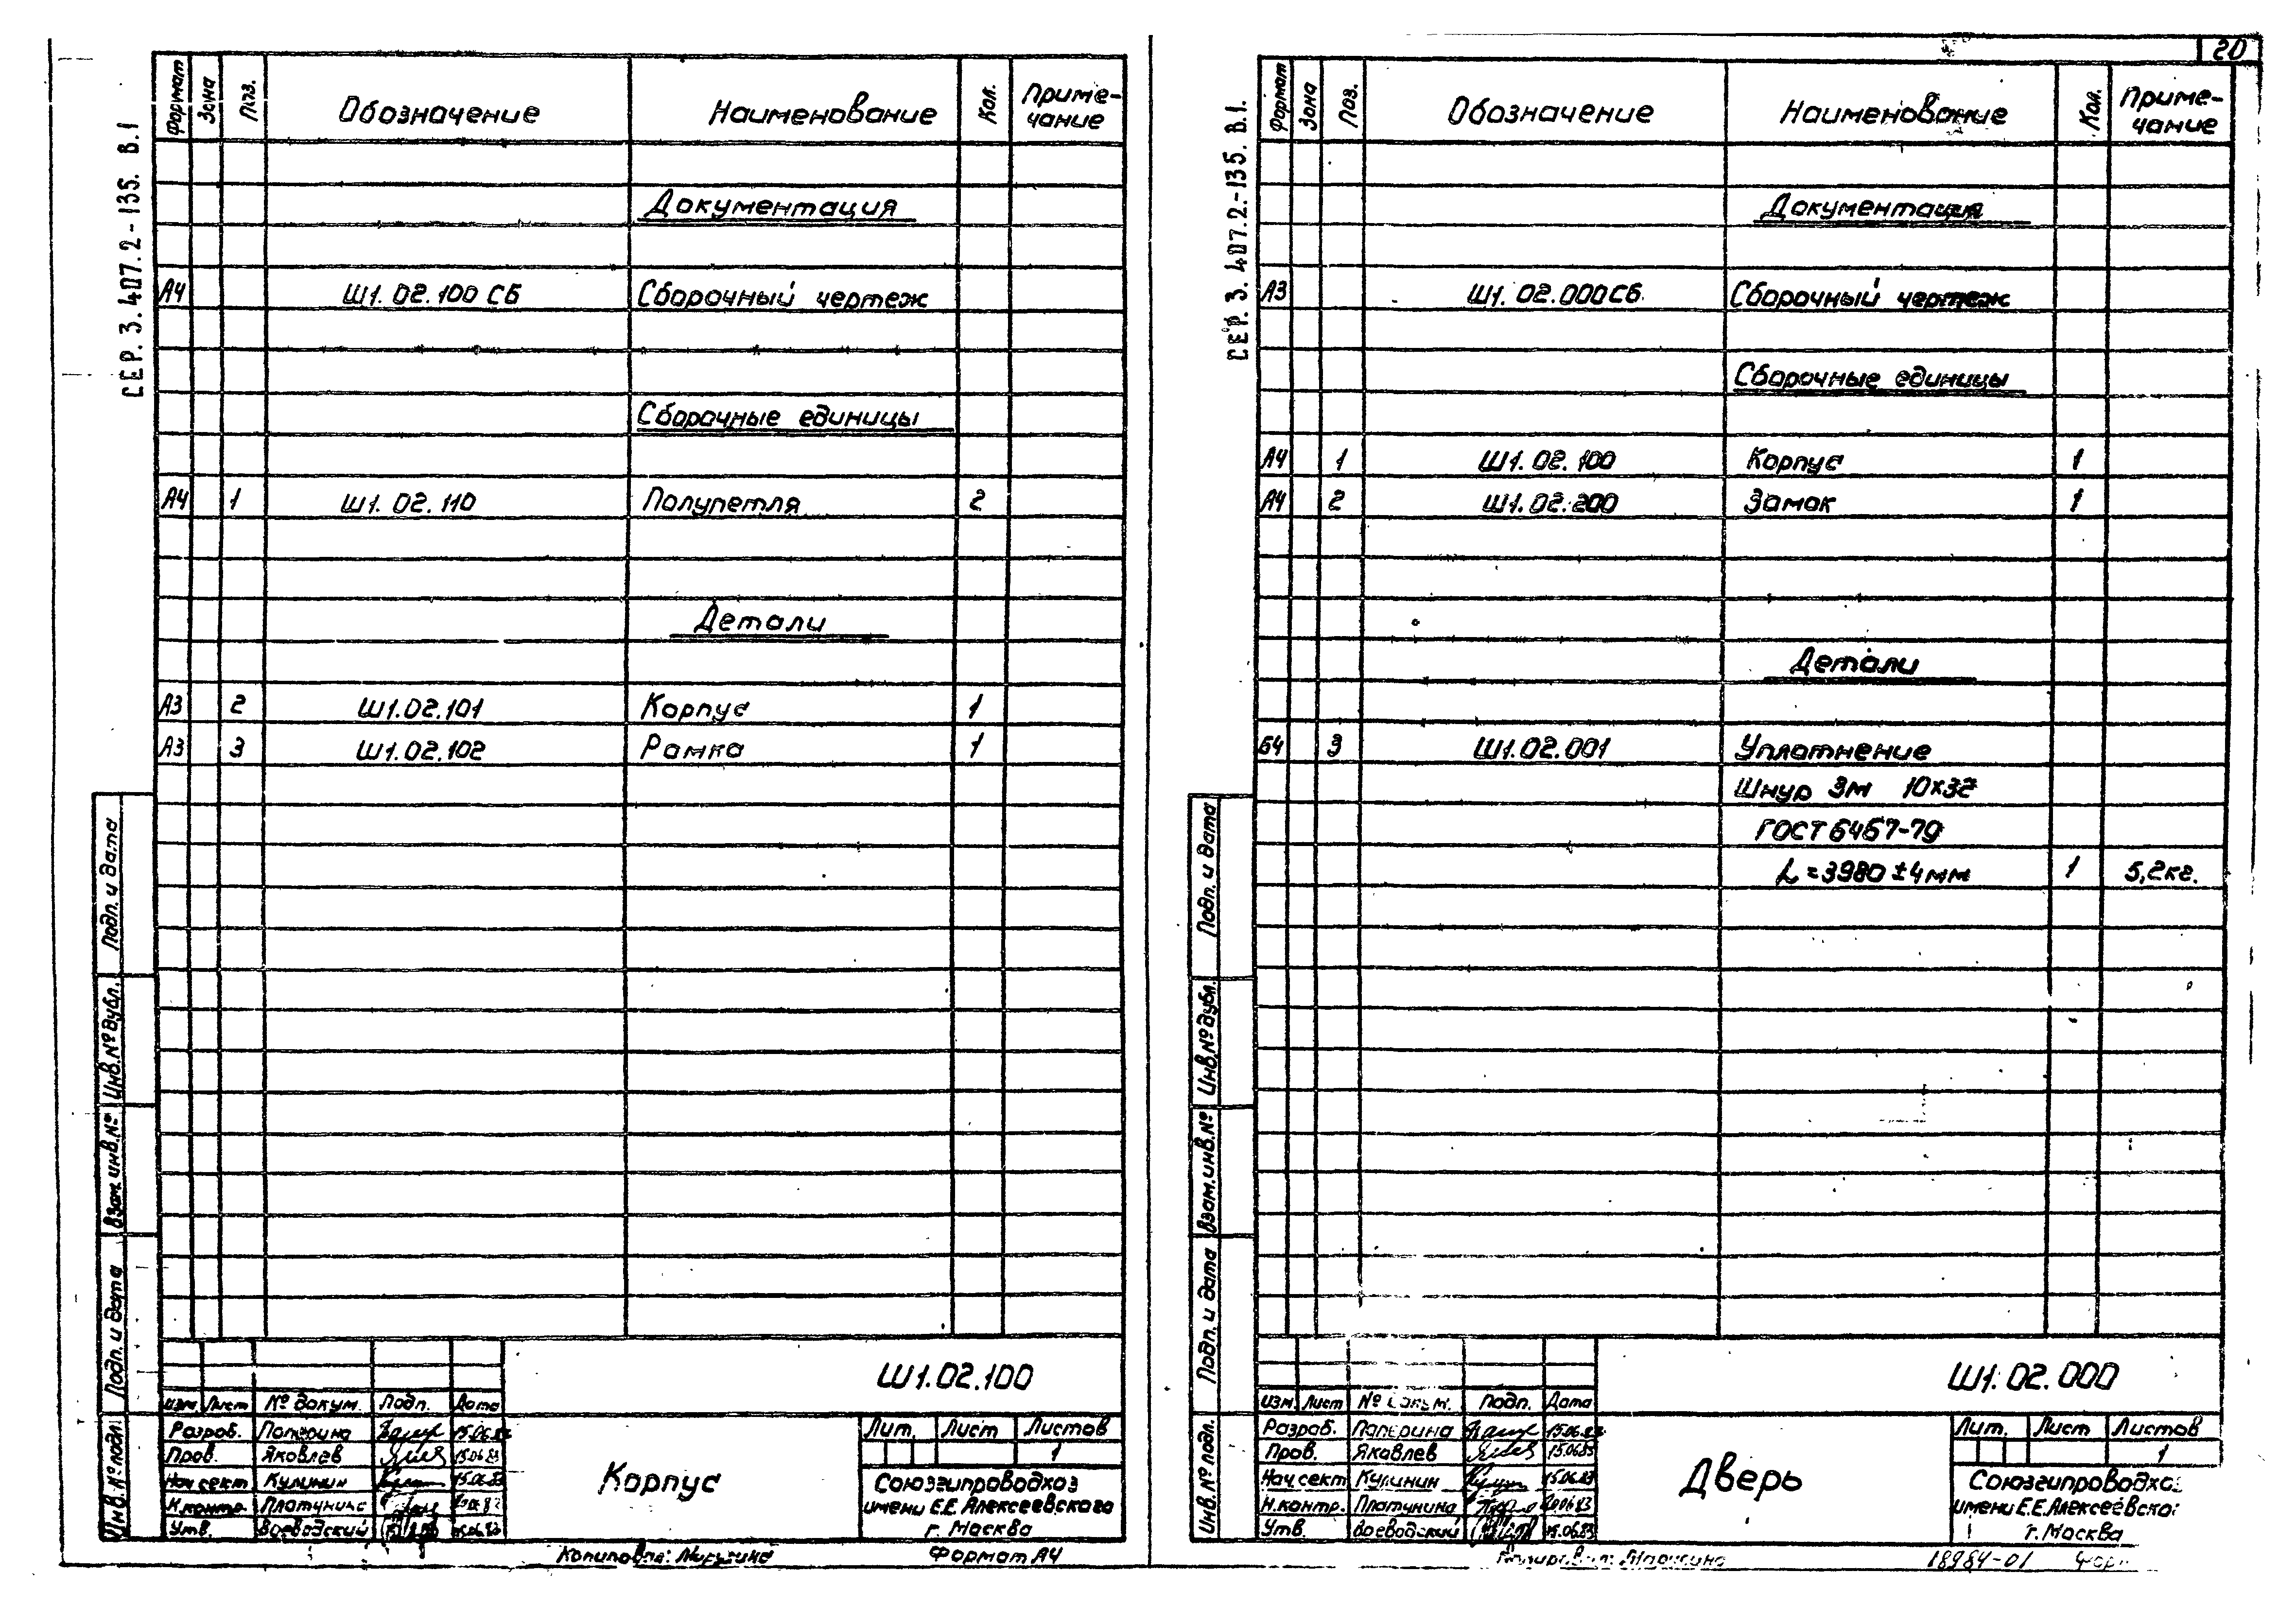 СЕР. 3. 407. 2-135. В.1
Формат Зона Поз. Обозначение Наименование Кол. Приме-
чание
Документация
А4 Ш1. 02. 100 СБ Сборочный чертеж
Сборочные единицы
А4 1 Ш1. 02. 110 Полупетля 2
Детали
А3 2 Ш1.02.101 Корпус 1
А3 3 Ш1.02.102 Рамка 1
Подп. и дата
Инв.№ дубл.
Взам. инв.№
Подп. и дата
Инв.№ подл.
Ш1.02.100
Изм. Лист № докум. Подп. Дата
Разраб. Паперина
Пров. Яковлев 15.06.83
Нач сект Кулинин 15.06.83
Н.контр. Платунина
Утв. Воеводский 15.06.83
Корпус
Лит. Лист Листов
1
Союзгипроводхоз
имени Е.Е.Алексеевского
г. Москва
Копировал: Марусина Формат А4
20
СЕР. 3. 407. 2-135. В.1.
Формат Зона Поз. Обозначение Наименование Кол. Приме-
чание
Документация
А3 Ш1. 02.000СБ Сборочный чертеж
Сборочные единицы
А4 1 Ш1. 02. 100 Корпус 1
А4 2 Ш1. 02. 200 Замок 1
Детали
Б4 3 Ш1. 02. 001 Уплотнение
Шнур 3м 10х32
ГОСТ 6467-79
L = 3980 ± 4 мм 1 5,2кг.
Подп. и дата
Инв.№ дубл.
Взам. инв.№
Подп. и дата
Инв.№ подл.
Ш1. 02. 000
Изм. Лист № докум. Подп. Дата
Разраб. Паперина
Пров. Яковлев 15.06.83
Нач сект Кулинин 15.06.83
Н.контр. Платунина
Утв. Воеводский 15.06.83
Дверь
Лит. Лист Листов
1
Союзгипроводхоз
имени Е.Е.Алексеевско
г. Москва
Копировал: Марусина 18984-01 Форм